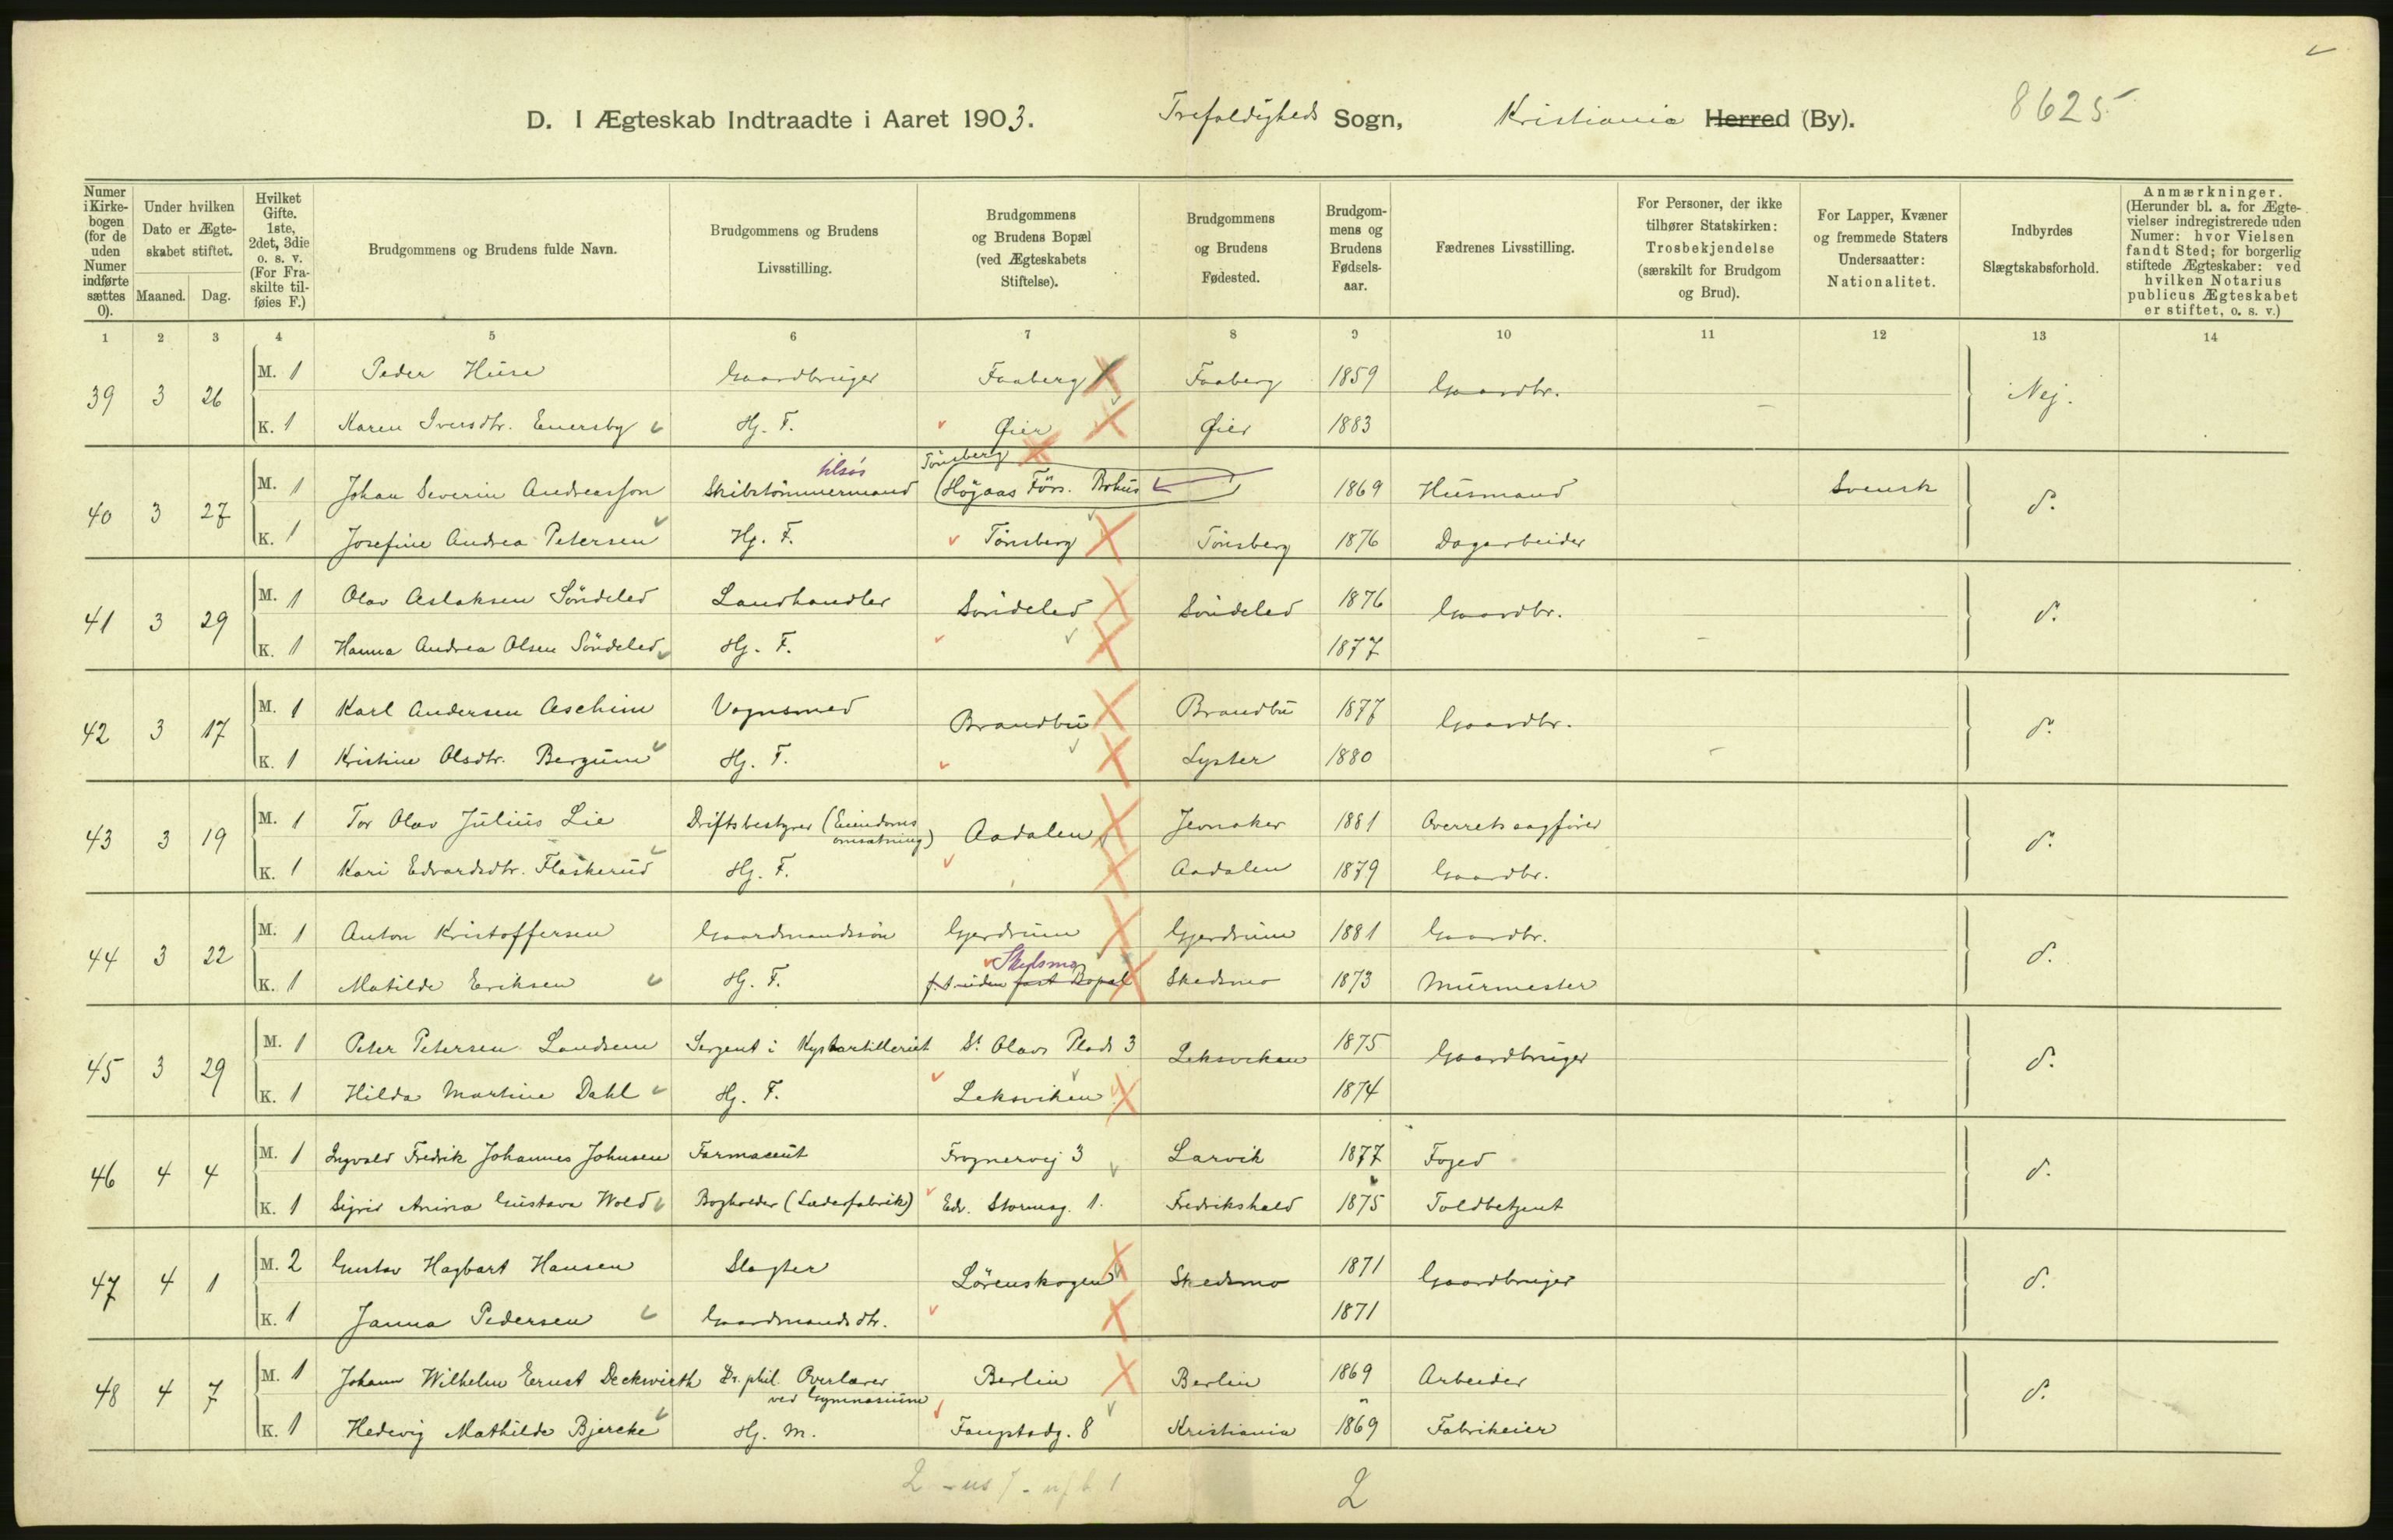 D. I Ægteskab Indtraadte i Aaret 1903. Trefoldigheds Sogn, Kristiania Herred (By). 8625
Numer i Kirkebogen (for de uden Numer indførte sættes 0).
Under hvilken Dato er Ægteskabet stiftet.
Maaned. Dag.
Hvilket Gifte. 1ste, 2det, 3die o. s. v. (For Fraskilte tilføies F.)
Brudgommens og Brudens fulde Navn.
Brudgommens og Brudens Livsstilling.
Brudgommens og Brudens Bopæl (ved Ægteskabets Stiftelse).
Brudgommens og Brudens Fødested.
Brudgommens og Brudens Fødselsaar.
Fædrenes Livsstilling.
For Personer, der ikke tilhører Statskirken: Trosbekjendelse (særskilt for Brudgom og Brud).
For Lapper, Kvæner og fremmede Staters Undersaatter: Nationalitet.
Indbyrdes Slægtskabsforhold.
Anmærkninger. (Herunder bl. a. for Ægtevielser indregistrerede uden Numer: hvor Vielsen fandt Sted; for borgerlig stiftede Ægteskaber: ved hvilken Notarius publicus Ægteskabet er stiftet, o. s. v.)
1 2 3 4 5 6 7 8 9 10 11 12 13 14
39 3 26 M. 1 Peder Huse Gaardbruger Faaberg Faaberg 1859 Gaardbr. Nej.
K. 1 Karen Iversdtr. Enersby Hj. F. Øier Øier 1883
tilsøs Tönsberg
40 3 27 M. 1 Johan Severin Andreasson Skibstömmermand (Högaas Förs. Bohus) 1869 Husmand Svensk d.
K. 1 Josefine Andrea Petersen Hj. F. Tönsberg Tönsberg 1876 Dagarbeider
41 3 29 M. 1 Olav Aslaksen Söndeled Landhandler Söndeled Söndeled 1876 Gaardbr. d.
K. 1 Hanna Andrea Olsen Söndeled Hj. F. 1877
42 3 17 M. 1 Karl Andersen Aschim Vognsmed Brandbu Brandbu 1877 Gaardbr. d.
K. 1 Kristine Olsdtr. Bergum Hj. F. Lyster 1880
43 3 19 M. 1 Tor Olav Julius Lie Driftsbestyrer (Eiendoms omsætning) Aadalen Jevnaker 1881 Overretssagförer d.
K. 1 Kari Edvardsdtr. Flaskerud Hj. F. Aadalen 1879 Gaardbr.
44 3 22 M. 1 Anton Kristoffersen Gaardmandssön Gjerdrum Gjerdrum 1881 Gaardbr. d.
Skedsmo
K. 1 Matilde Eriksen Hj. F. f. t. uden fast Bopæl Skedsmo 1873 Murmester
45 3 29 M. 1 Peter Petersen Landsem Sergent i Kystartilleriet St. Olavs Plads 3 Leksviken 1875 Gaardbruger d.
K. 1 Hilda Martine Dahl Hj. F. Leksviken 1874
46 4 4 M. 1 Ingvald Fredrik Johannes Johnsen Farmaceut Frognervej 3 Larvik 1877 Foged d.
K. 1 Sigrid Anina Gustava Wold Bogholder (Læderfabrik) Edv. Stormsg. 1. Fredrikshald 1875 Toldbetjent
47 4 1 M. 2 Gustav Hagbart Hansen Slagter Lörenskogen Skedsmo 1871 Gaardbruger d.
K. 1 Janna Pedersen Gaardmandsdtr. 1871
48 4 7 M. 1 Johann Wilhelm Ernst Deckwirth Dr. phil. Overlærer ved Gymnasium Berlin Berlin 1869 Arbeider d.
K. 1 Hedevig Mathilde Bjercke Hj. M. 8 Kristiania 1869 Fabrikeier
2